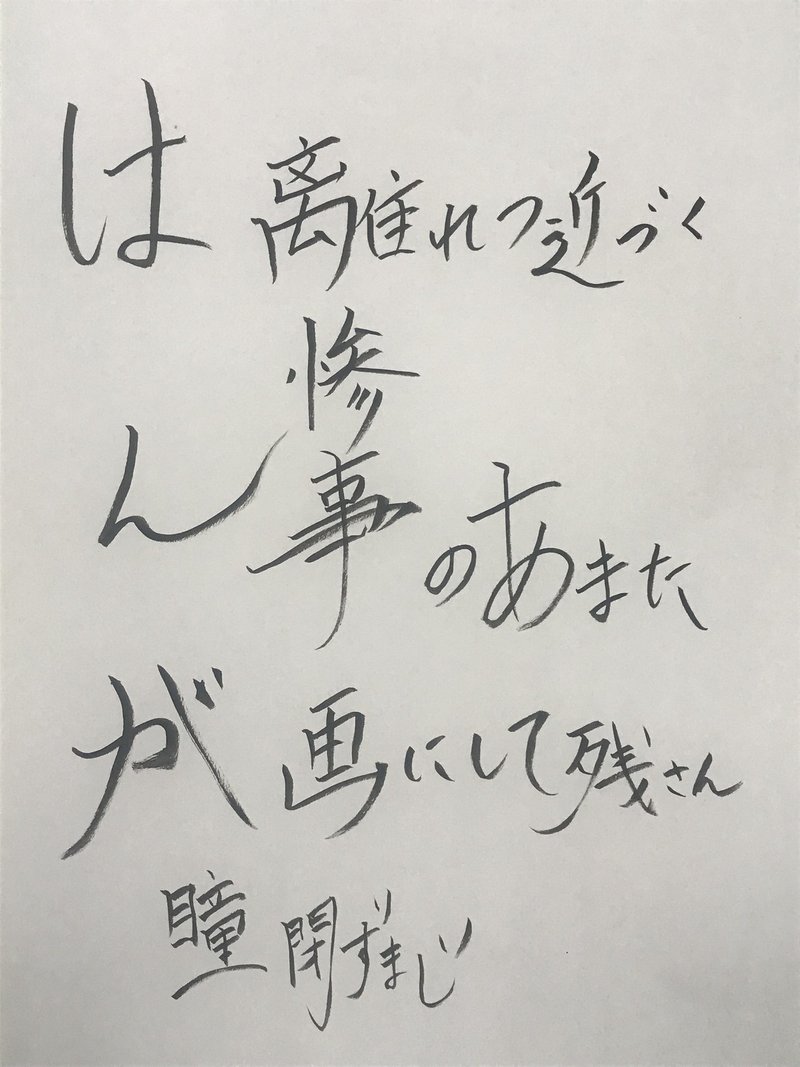 は 離れつ近づく
ん 惨事のあまた
が 画にして残さん
瞳閉ずまじ